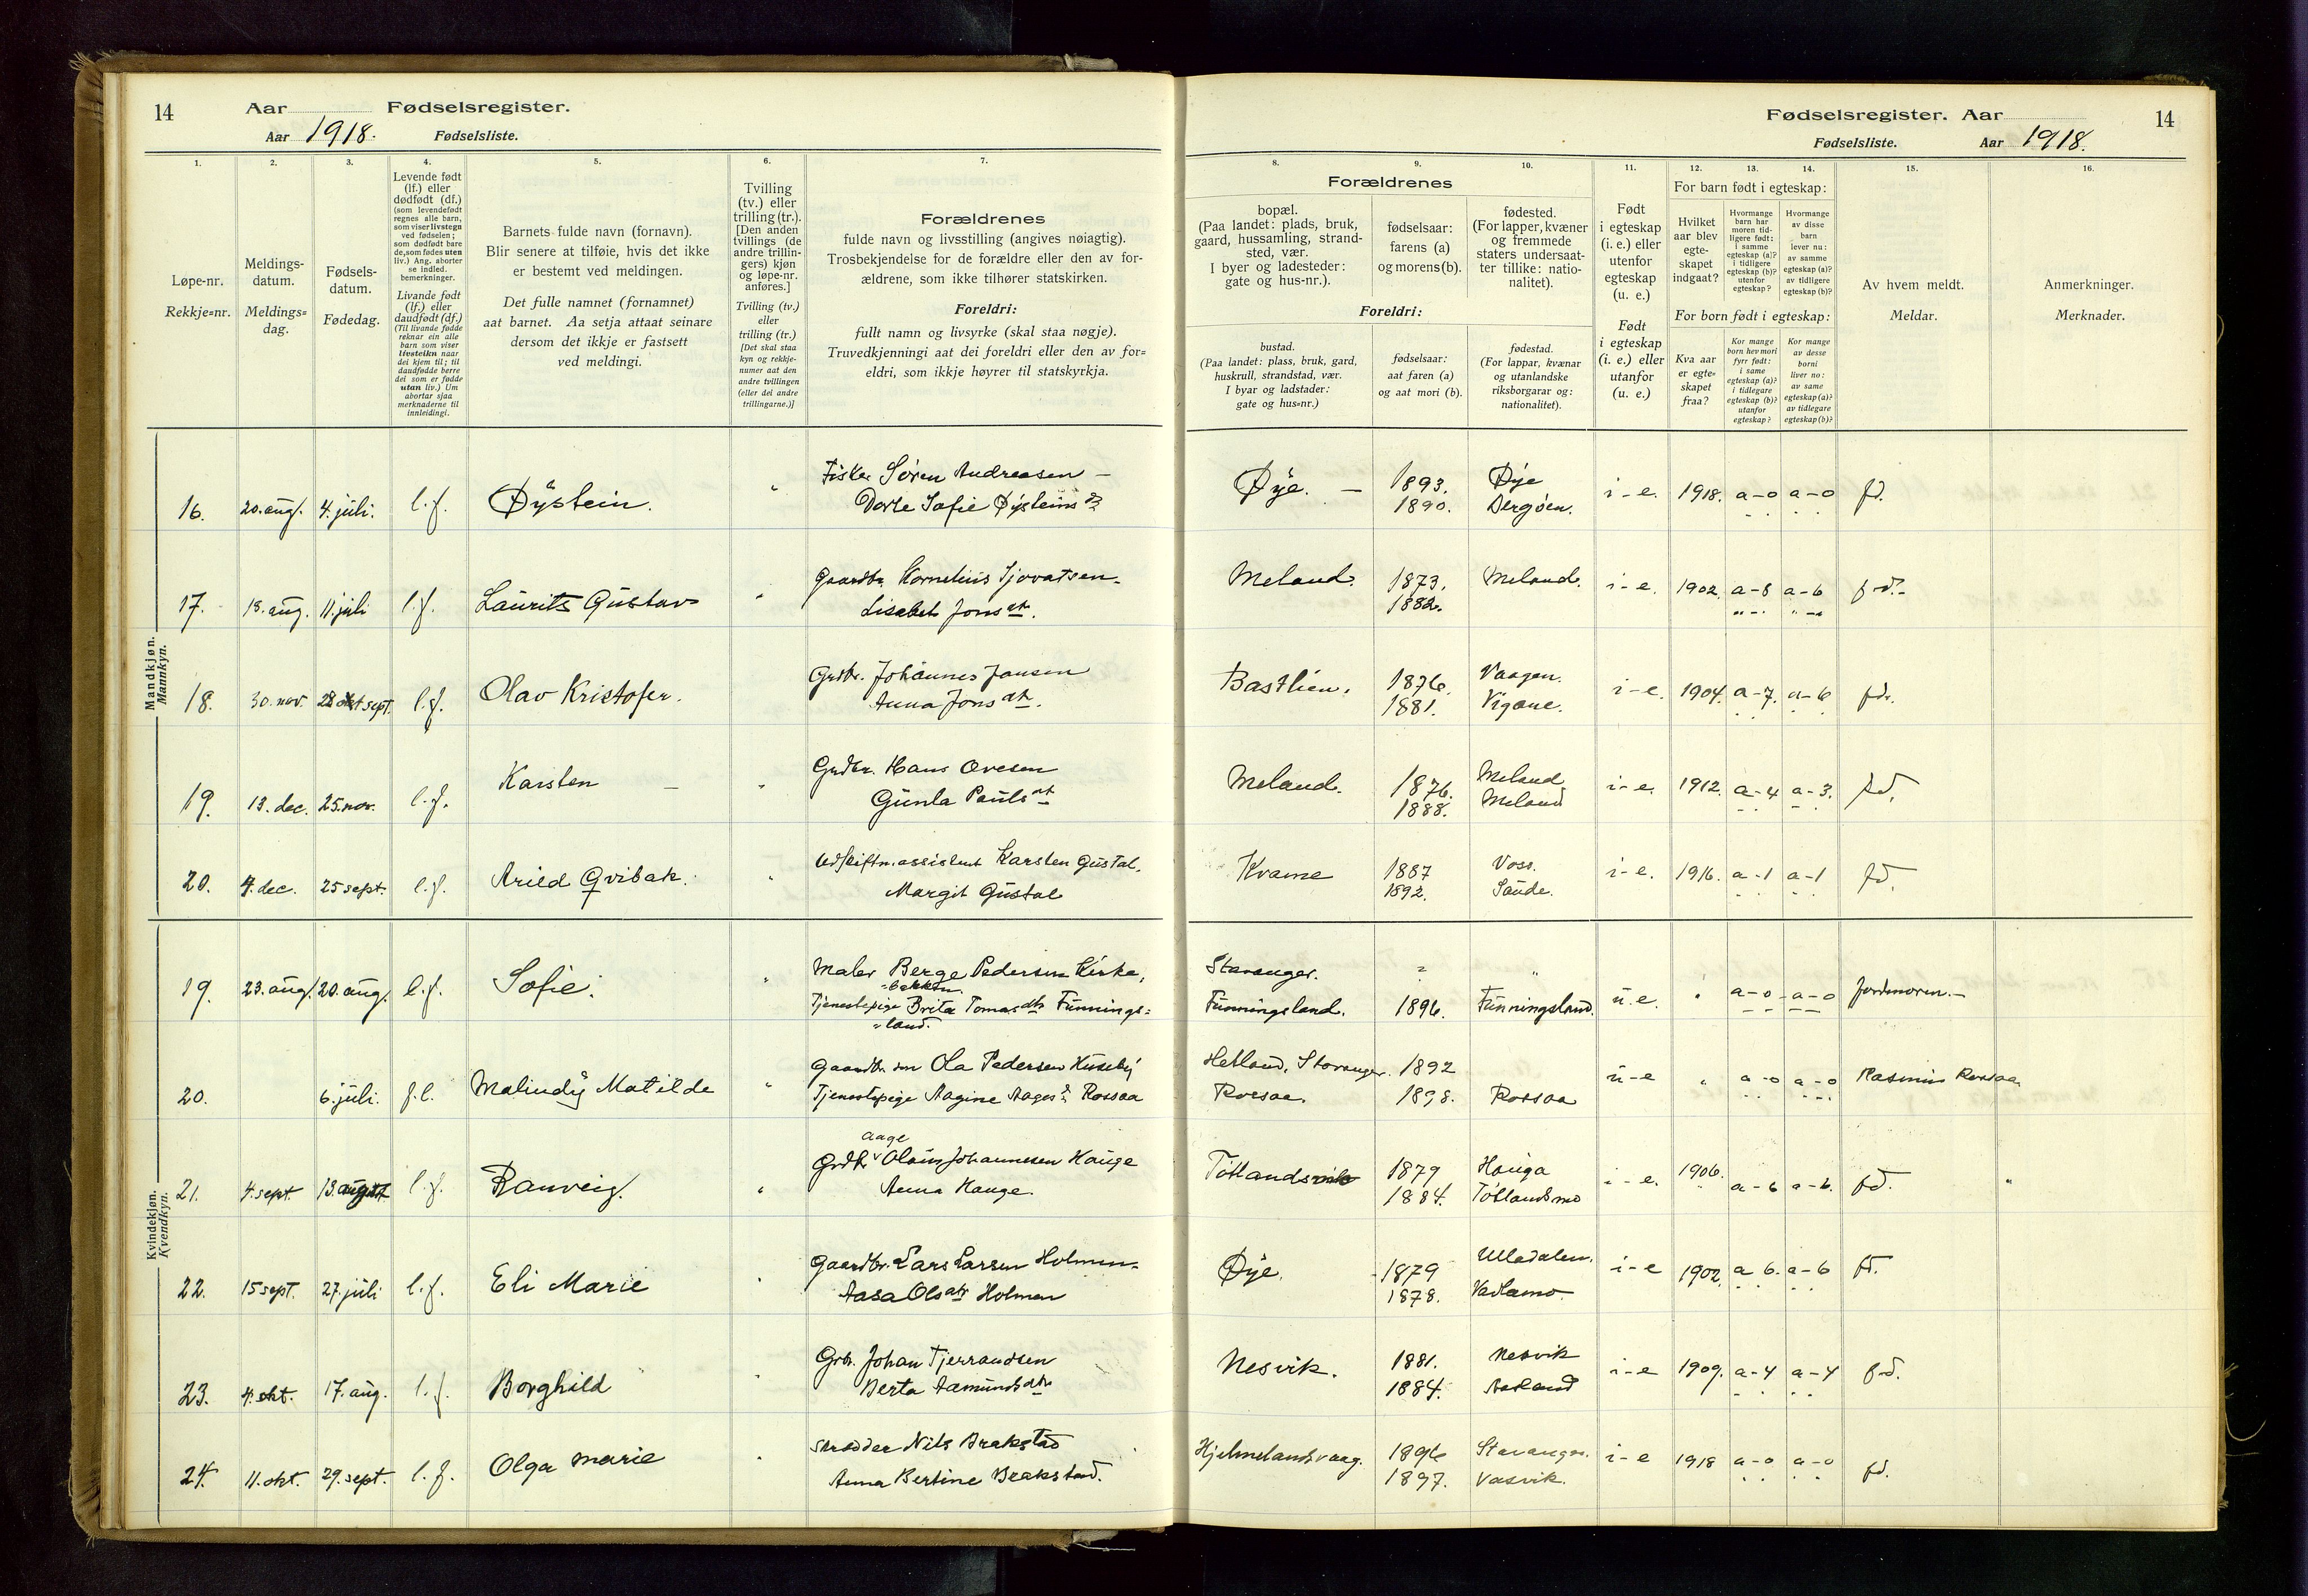 14 Aar Fødselsregister.
Aar 1918. Fødselsliste.
1. 2. 3. 4. 5. 6. 7.
Løpe-nr.
Rekkje=nr.
Meldings-
datum.
Meldings=
dag.
Fødsels-
datum.
Fødedag.
Levende født
(lf.) eller
dødfødt (df.)
(som levendefødt
regnes alle barn,
som viser livstegn
ved fødselen;
som dødfødt bare
de, som fødes uten
liv.) Ang. aborter
se indled.
bemerkninger.
Livande født
(lf.) eller
daudfødt (df.)
(Til livande fødde
reknar ein alle
barn som viser
livsteikn naar
dei kjem til; til
daudfødde berre
dei som er fødde
utan liv.) Um
abortar sjaa
merknaderne til
innleidingi.
Barnets fulde navn (fornavn).
Blir senere at tilføie, hvis det ikke
er bestemt ved meldingen.
Det fulle namnet (fornamnet)
aat barnet. Aa setja attaat seinare
dersom det ikkje er fastsett
ved meldingi.
Tvilling
(tv.) eller
trilling (tr.).
[Den anden
tvillings (de
andre trillin-
gers) kjøn
og løpe-nr.
anføres.]
Tvilling (tv.)
eller
trilling (tr.)
[Det skal staa
kyn og rekkje-
numer aat den
andre tvillingen
(eller dei andre
trillingarne.)]
Forældrenes
fulde navn og livsstilling (angives nøiagtig).
Trosbekjendelse for de forældre eller den av for-
ældrene, som ikke tilhører statskirken.
Foreldri:
fullt namn og livsyrke (skal staa nøgje).
Truvedkjenningi aat dei foreldri eller den av for=
eldri, som ikkje høyrer til statskyrkja.
Mandkjøn.
Mannkyn.
16. 20. aug. 4. juli. l.f. Øystein. " Fisker Søren Andreasen –
Dorte Sofie Øysteins
17. 18. aug. 11. juli l.f. Laurits Gustav " Gaardbr. Kornelius Sjovatsen.
Lisabet Jons dtr.
18. 30. nov. 28 sept. l.f. Olav Kristofer. Grdbr. Johannes Jansen
Anna Jons dtr.
19. 13. dec. 25. nov. l.f. Karsten – " Grdbr. Hans Ovesen
Gunla Pauls dtr
20. 4. dec. 25 sept. l.f. Arild Qvibak. " Udskiftn.assistent Karsten Gustal.
Margit Gustal
Kvindekjøn.
Kvendkyn.
19. 23. aug. 20. aug. l.f. Sofie. " Maler Berge Pedersen Kirke,
=bakken.
Tjenestepige Brita Tomasdtr Funnings=
=land.
20. 6. juli. f.l. Malindy Matilde " Gaardbr. søn Ola Pedersen Huseby
Tjenestepige Aagine Aages Rossaa
aage
21. 4. sept. 13. august l.f. Ranveig. " Grdbr Olaus Johannesen Hauge
Anna Hauge.
22. 15 sept. 27. juli l.f. Eli Marie " Gaardbr. Lars Larsen Holmen-
Aasa Olsdtr Holmen
23. 4. okt. 17. aug. l.f. Borghild " Grbr. Johan Tjerrandsen
Berta Aamunds dtr
24. 11. okt. 29. sept. l.f. Olga Marie " Skrædder Nils Brakstad
Anna Bertine Brakstad.
Fødselsregister. Aar 14
Fødselsliste. Aar 1918.
8. 9. 10. 11. 12. 13. 14. 15. 16.
Forældrenes
bopæl.
(Paa landet: plads, bruk,
gaard, hussamling, strand-
sted, vær.
I byer og ladesteder:
gate og hus-nr.).
fødselsaar:
farens (a)
og morens (b).
fødested.
(For lapper, kvæner
og fremmede
staters undersaat-
ter tillike: natio-
nalitet).
Foreldri:
bustad.
(Paa landet: plass, bruk, gard,
huskrull, strandstad, vær.
I byar og ladstader:
gate og hus=nr.)
fødselsaar:
aat faren (a)
og aat mori (b).
fødestad.
(For lappar, kvænar
og utanlandske
riksborgarar og:
nationalitet).
Født
i egteskap
(i. e.) eller
utenfor
egteskap
(u. e.)
Født
i egteskap
(i. e.) eller
utanfor
(u. e.)
For barn født i egteskap:
Hvilket
aar blev
egte-
skapet
indgaat?
Hvormange
barn har
moren tid-
ligere født:
i samme
egteskap (a)?
i tidligere
egteskap (b)?
utenfor
egteskap?
Hvormange
av disse
barn
lever nu:
av samme
egteskap (a)?
av tidligere
egteskap (b)?
For born født i egteskap:
Kva aar
er egte=
skapet
fraa?
Kor mange
born hev mori
fyrr født:
i same
egteskap (a)?
i tidlegare
egteskap (b)?
utanfor
egteskap?
Kor mange
av desse
borni
liver no:
av same
egteskap (a)?
av tidlegare
egteskap (b)?
Av hvem meldt.
Meldar.
Anmerkninger.
Merknader.
Øye. – 1893. Øye i-e. 1918. a-0 a-0 fd.
1890. Bergøen.
Meland. 1873. Meland. i-e. 1902. a-8 a-6 fd.-
1882.
Bastlien. 1876. Vaagen. i-e. 1904. a-7. a-6 fdr.
1881. Vigane.
Meland. 1876. Meland i-e. 1912. a-4 a-3. fd.
1888. Meland
Kvame 1887 Voss. i-e. 1916. a-1 a-1 fd.
1892. Saude.
Stavanger. " " u.e. " a-0 a-0 Jordmoren.-
Funningsland. 1896. Funningsland.
Hetland, Stavanger. 1892 u-e " a-0 a-0 Rasmus Rossaa
Rossaa. 1898. Rossaa
Tøtlandsvik 1879 Hauga i-e. 1906. a-6 a-6. fd. "
1884. Tøtlandsmo
Øye. 1879 Ulladalen. i-e 1902. a 6. a-6 fd.
1878. Vadlamo.
Nesvik. 1881. Nesvik i-e 1909. a-4 a-4 fd.
1884. Aasland
Hjelmelandsvaag. 1896 Stavanger. i-e 1918 a-0 a-0 fd.
1897. Vasvik.